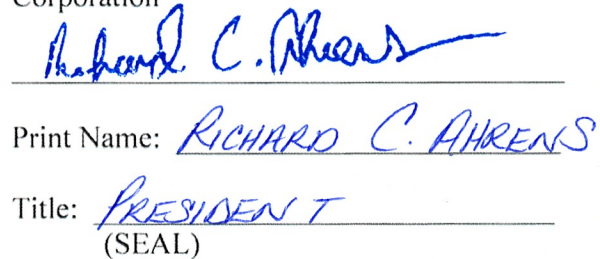 Corporation
Richard C. Ahrens
Print Name: RICHARD C. AHRENS
Title: PRESIDENT
(SEAL)